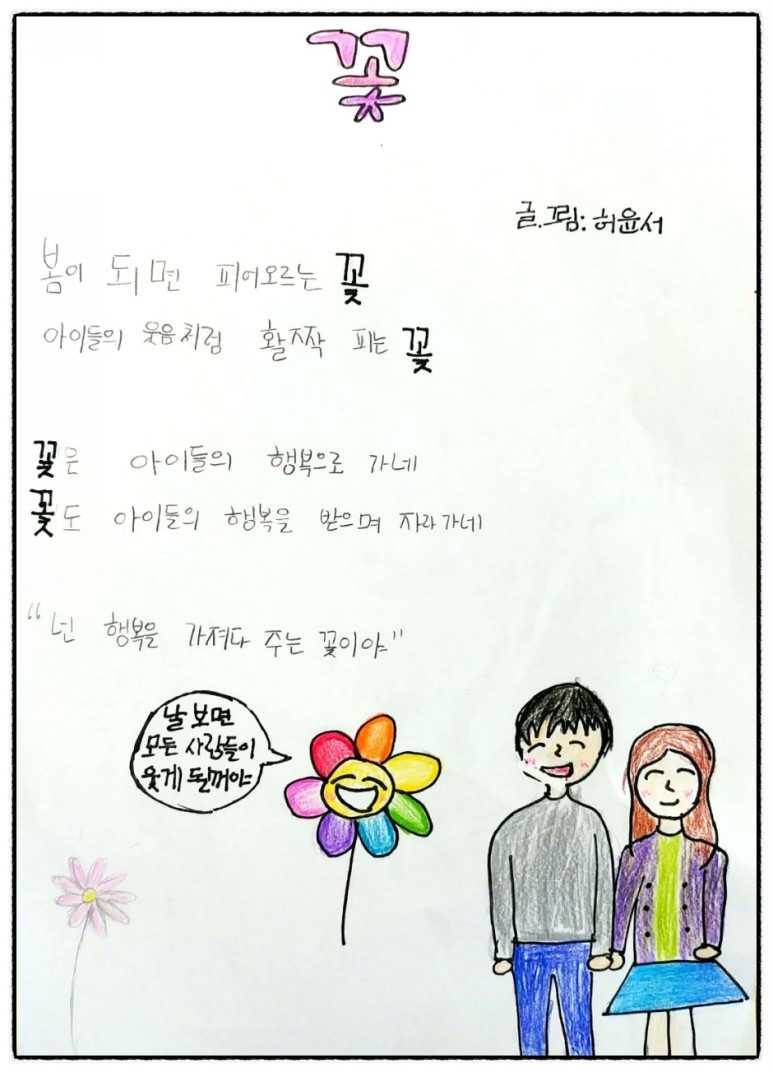 꽃
글.그림: 허윤서
봄이 되면 피어오르는 꽃
아이들의 웃음처럼 활짝 피는 꽃
꽃은 아이들의 행복으로 가네
꽃도 아이들의 행복을 받으며 자라가네
"넌 행복을 가져다 주는 꽃이야"
날 보면
모든 사람들이
웃게 될꺼야